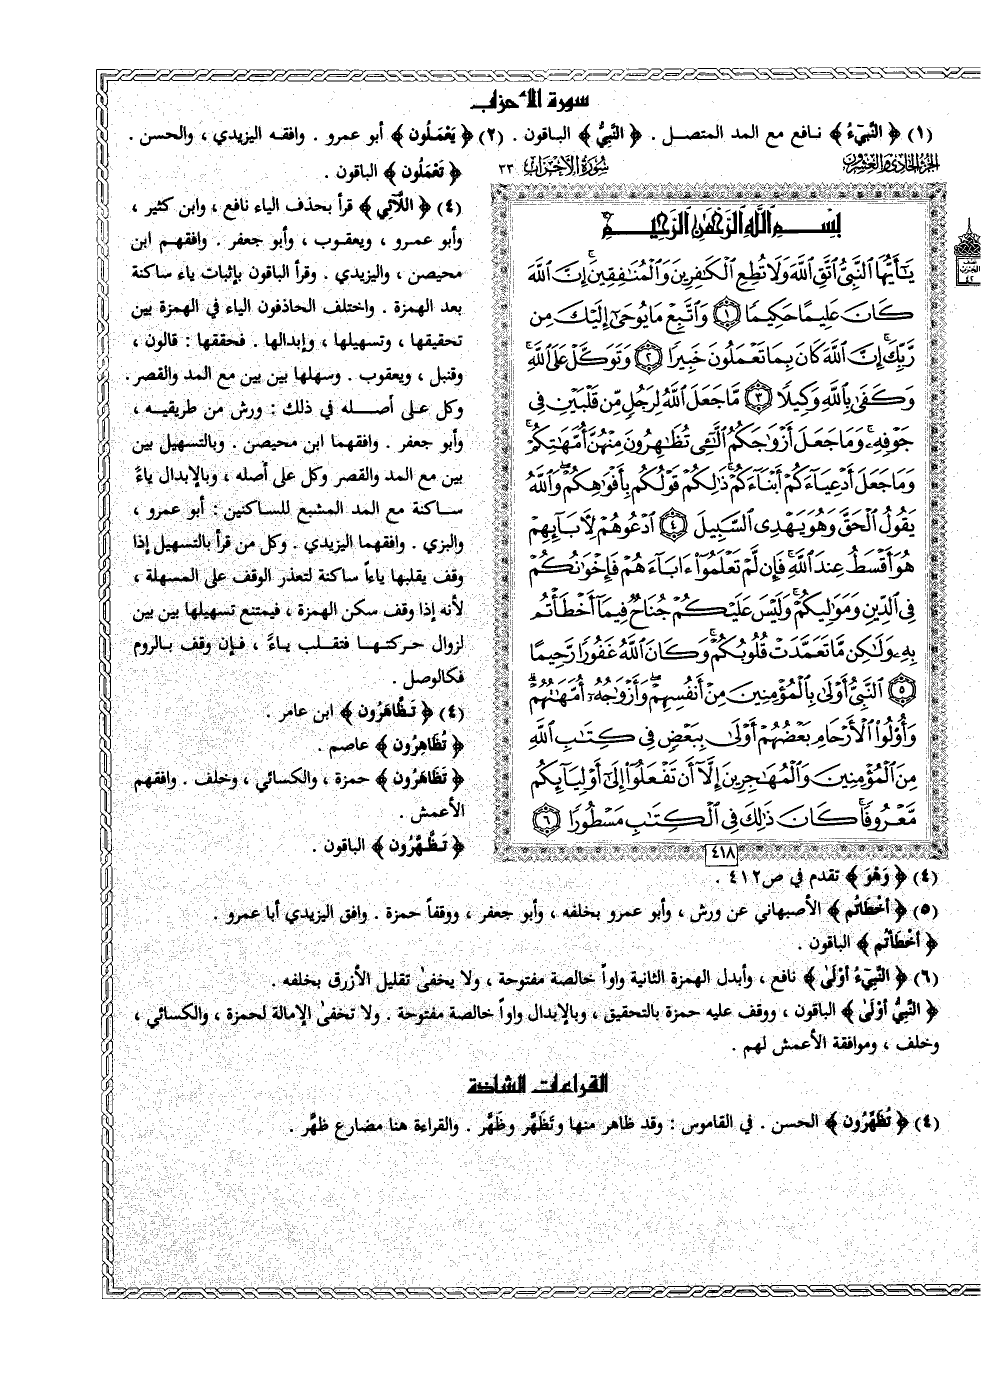 سورة الأحزاب
(١) ﴿ النَّبِيءُ ﴾ نافع مع المد المتصل . ﴿ النَّبِيُّ ﴾ الباقون . (٢) ﴿ يَعْمَلُون ﴾ أبو عمرو . وافقه اليزيدي ، والحسن .
﴿ تَعْمَلُون ﴾ الباقون .
(٤) ﴿ اللَّائِي ﴾ قرأ بحذف الياء نافع ، وابن كثير ،
وأبو عمرو ، ويعقوب ، وأبو جعفر . وافقهم ابن
محيصن ، واليزيدي . وقرأ الباقون بإثبات ياء ساكنة
بعد الهمزة . واختلف الحاذفون الياء في الهمزة بين
تحقيقها ، وتسهيلها ، وإبدالها . فحققها : قالون ،
وقنبل ، ويعقوب . وسهلها بين بين مع المد والقصر .
وكل على أصله في ذلك : ورش من طريقيه ،
وأبو جعفر . وافقهما ابن محيصن . وبالتسهيل بين
بين مع المد والقصر وكل على أصله ، وبالإبدال ياءً
ساكنة مع المد المشبع للساكنين : أبو عمرو ،
والبزي . وافقهما اليزيدي . وكل من قرأ بالتسهيل إذا
وقف يقلبها ياءاً ساكنة لتعذر الوقف على المسهلة ،
لأنه إذا وقف سكن الهمزة ، فيمتنع تسهيلها بين بين
لزوال حركتها فتقلب ياءً ، فإن وقف بالروم
فكالوصل .
(٤) ﴿ تَظَّاهَرُون ﴾ ابن عامر .
﴿ تُظَاهِرُون ﴾ عاصم .
﴿ تَظَاهَرُون ﴾ حمزة ، والكسائي ، وخلف . وافقهم
الأعمش .
﴿ تَظَّهَّرُون ﴾ الباقون .
الجزء الحادي والعشرون
سورة الأحزاب ٣٣
بِسْمِ اللَّهِ الرَّحْمَٰنِ الرَّحِيمِ
يَٰٓأَيُّهَا النَّبِيُّ اتَّقِ اللَّهَ وَلَا تُطِعِ الْكَٰفِرِينَ وَالْمُنَٰفِقِينَ ۗ إِنَّ اللَّهَ
كَانَ عَلِيمًا حَكِيمًا ١ وَاتَّبِعْ مَا يُوحَىٰٓ إِلَيْكَ مِن
رَّبِّكَ ۚ إِنَّ اللَّهَ كَانَ بِمَا تَعْمَلُونَ خَبِيرًا ٢ وَتَوَكَّلْ عَلَى اللَّهِ ۚ
وَكَفَىٰ بِاللَّهِ وَكِيلًا ٣ مَّا جَعَلَ اللَّهُ لِرَجُلٍ مِّن قَلْبَيْنِ فِي
جَوْفِهِۦ ۚ وَمَا جَعَلَ أَزْوَٰجَكُمُ الَّٰٓـِٔي تُظَٰهِرُونَ مِنْهُنَّ أُمَّهَٰتِكُمْ ۚ
وَمَا جَعَلَ أَدْعِيَآءَكُمْ أَبْنَآءَكُمْ ۚ ذَٰلِكُمْ قَوْلُكُم بِأَفْوَٰهِكُمْ ۖ وَاللَّهُ
يَقُولُ الْحَقَّ وَهُوَ يَهْدِي السَّبِيلَ ٤ ادْعُوهُمْ لِأَبَآئِهِمْ
هُوَ أَقْسَطُ عِندَ اللَّهِ ۚ فَإِن لَّمْ تَعْلَمُوٓا۟ ءَابَآءَهُمْ فَإِخْوَٰنُكُمْ
فِي الدِّينِ وَمَوَٰلِيكُمْ ۚ وَلَيْسَ عَلَيْكُمْ جُنَاحٌ فِيمَآ أَخْطَأْتُم
بِهِۦ وَلَٰكِن مَّا تَعَمَّدَتْ قُلُوبُكُمْ ۚ وَكَانَ اللَّهُ غَفُورًا رَّحِيمًا
٥ النَّبِيُّ أَوْلَىٰ بِالْمُؤْمِنِينَ مِنْ أَنفُسِهِمْ ۖ وَأَزْوَٰجُهُۥٓ أُمَّهَٰتُهُمْ ۗ
وَأُو۟لُوا۟ الْأَرْحَامِ بَعْضُهُمْ أَوْلَىٰ بِبَعْضٍ فِي كِتَٰبِ اللَّهِ
مِنَ الْمُؤْمِنِينَ وَالْمُهَٰجِرِينَ إِلَّآ أَن تَفْعَلُوٓا۟ إِلَىٰٓ أَوْلِيَآئِكُم
مَّعْرُوفًا ۚ كَانَ ذَٰلِكَ فِي الْكِتَٰبِ مَسْطُورًا ٦
٤١٨
(٤) ﴿ وَهْوَ ﴾ تقدم في ص٤١٢ .
(٥) ﴿ أَخْطَاتُم ﴾ الأصبهاني عن ورش ، وأبو عمرو بخلفه ، وأبو جعفر ، ووقفاً حمزة . وافق اليزيدي أبا عمرو .
﴿ أَخْطَأْتُم ﴾ الباقون .
(٦) ﴿ النَّبِيءُ أَوْلَىٰ ﴾ نافع ، وأبدل الهمزة الثانية واواً خالصة مفتوحة ، ولا يخفىٰ تقليل الأزرق بخلفه .
﴿ النَّبِيُّ أَوْلَىٰ ﴾ الباقون ، ووقف عليه حمزة بالتحقيق ، وبالإبدال واواً خالصة مفتوحة . ولا تخفىٰ الإمالة لحمزة ، والكسائي ،
وخلف ، وموافقة الأعمش لهم .
القراءات الشاذة
(٤) ﴿ تُظَهِّرُون ﴾ الحسن . في القاموس : وقد ظاهر منها وتَظَهَّر وظَهَّر . والقراءة هنا مضارع ظهَّر .